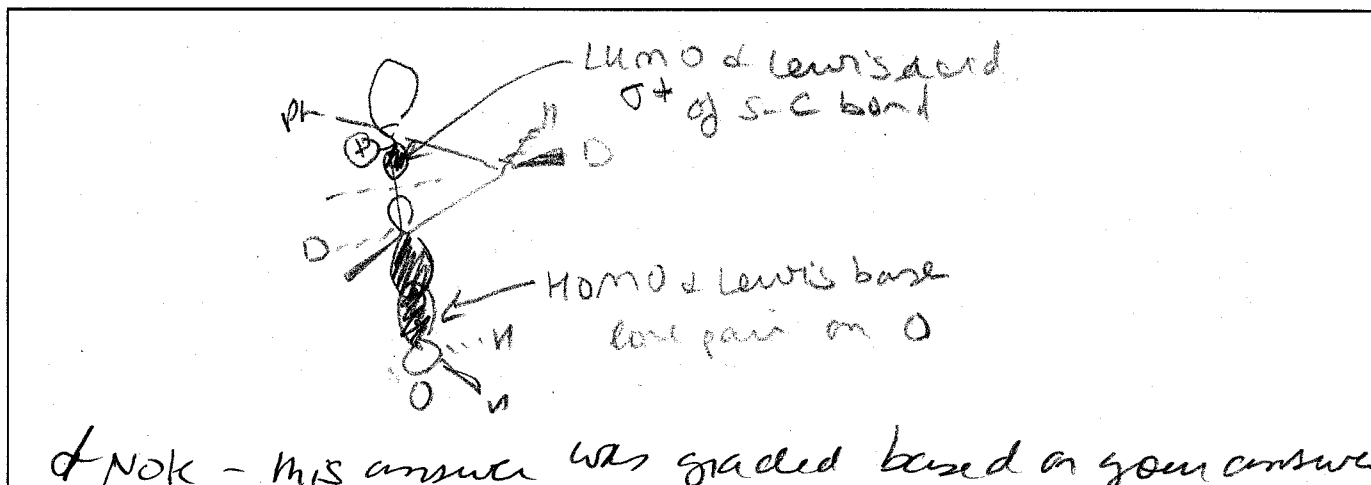 LUMO & Lewis acid
σ* of S-C bond
Ph
H
D
⊕
D
HOMO & Lewis base
lone pair on O
H
O
H
- this answer was graded based on your answer